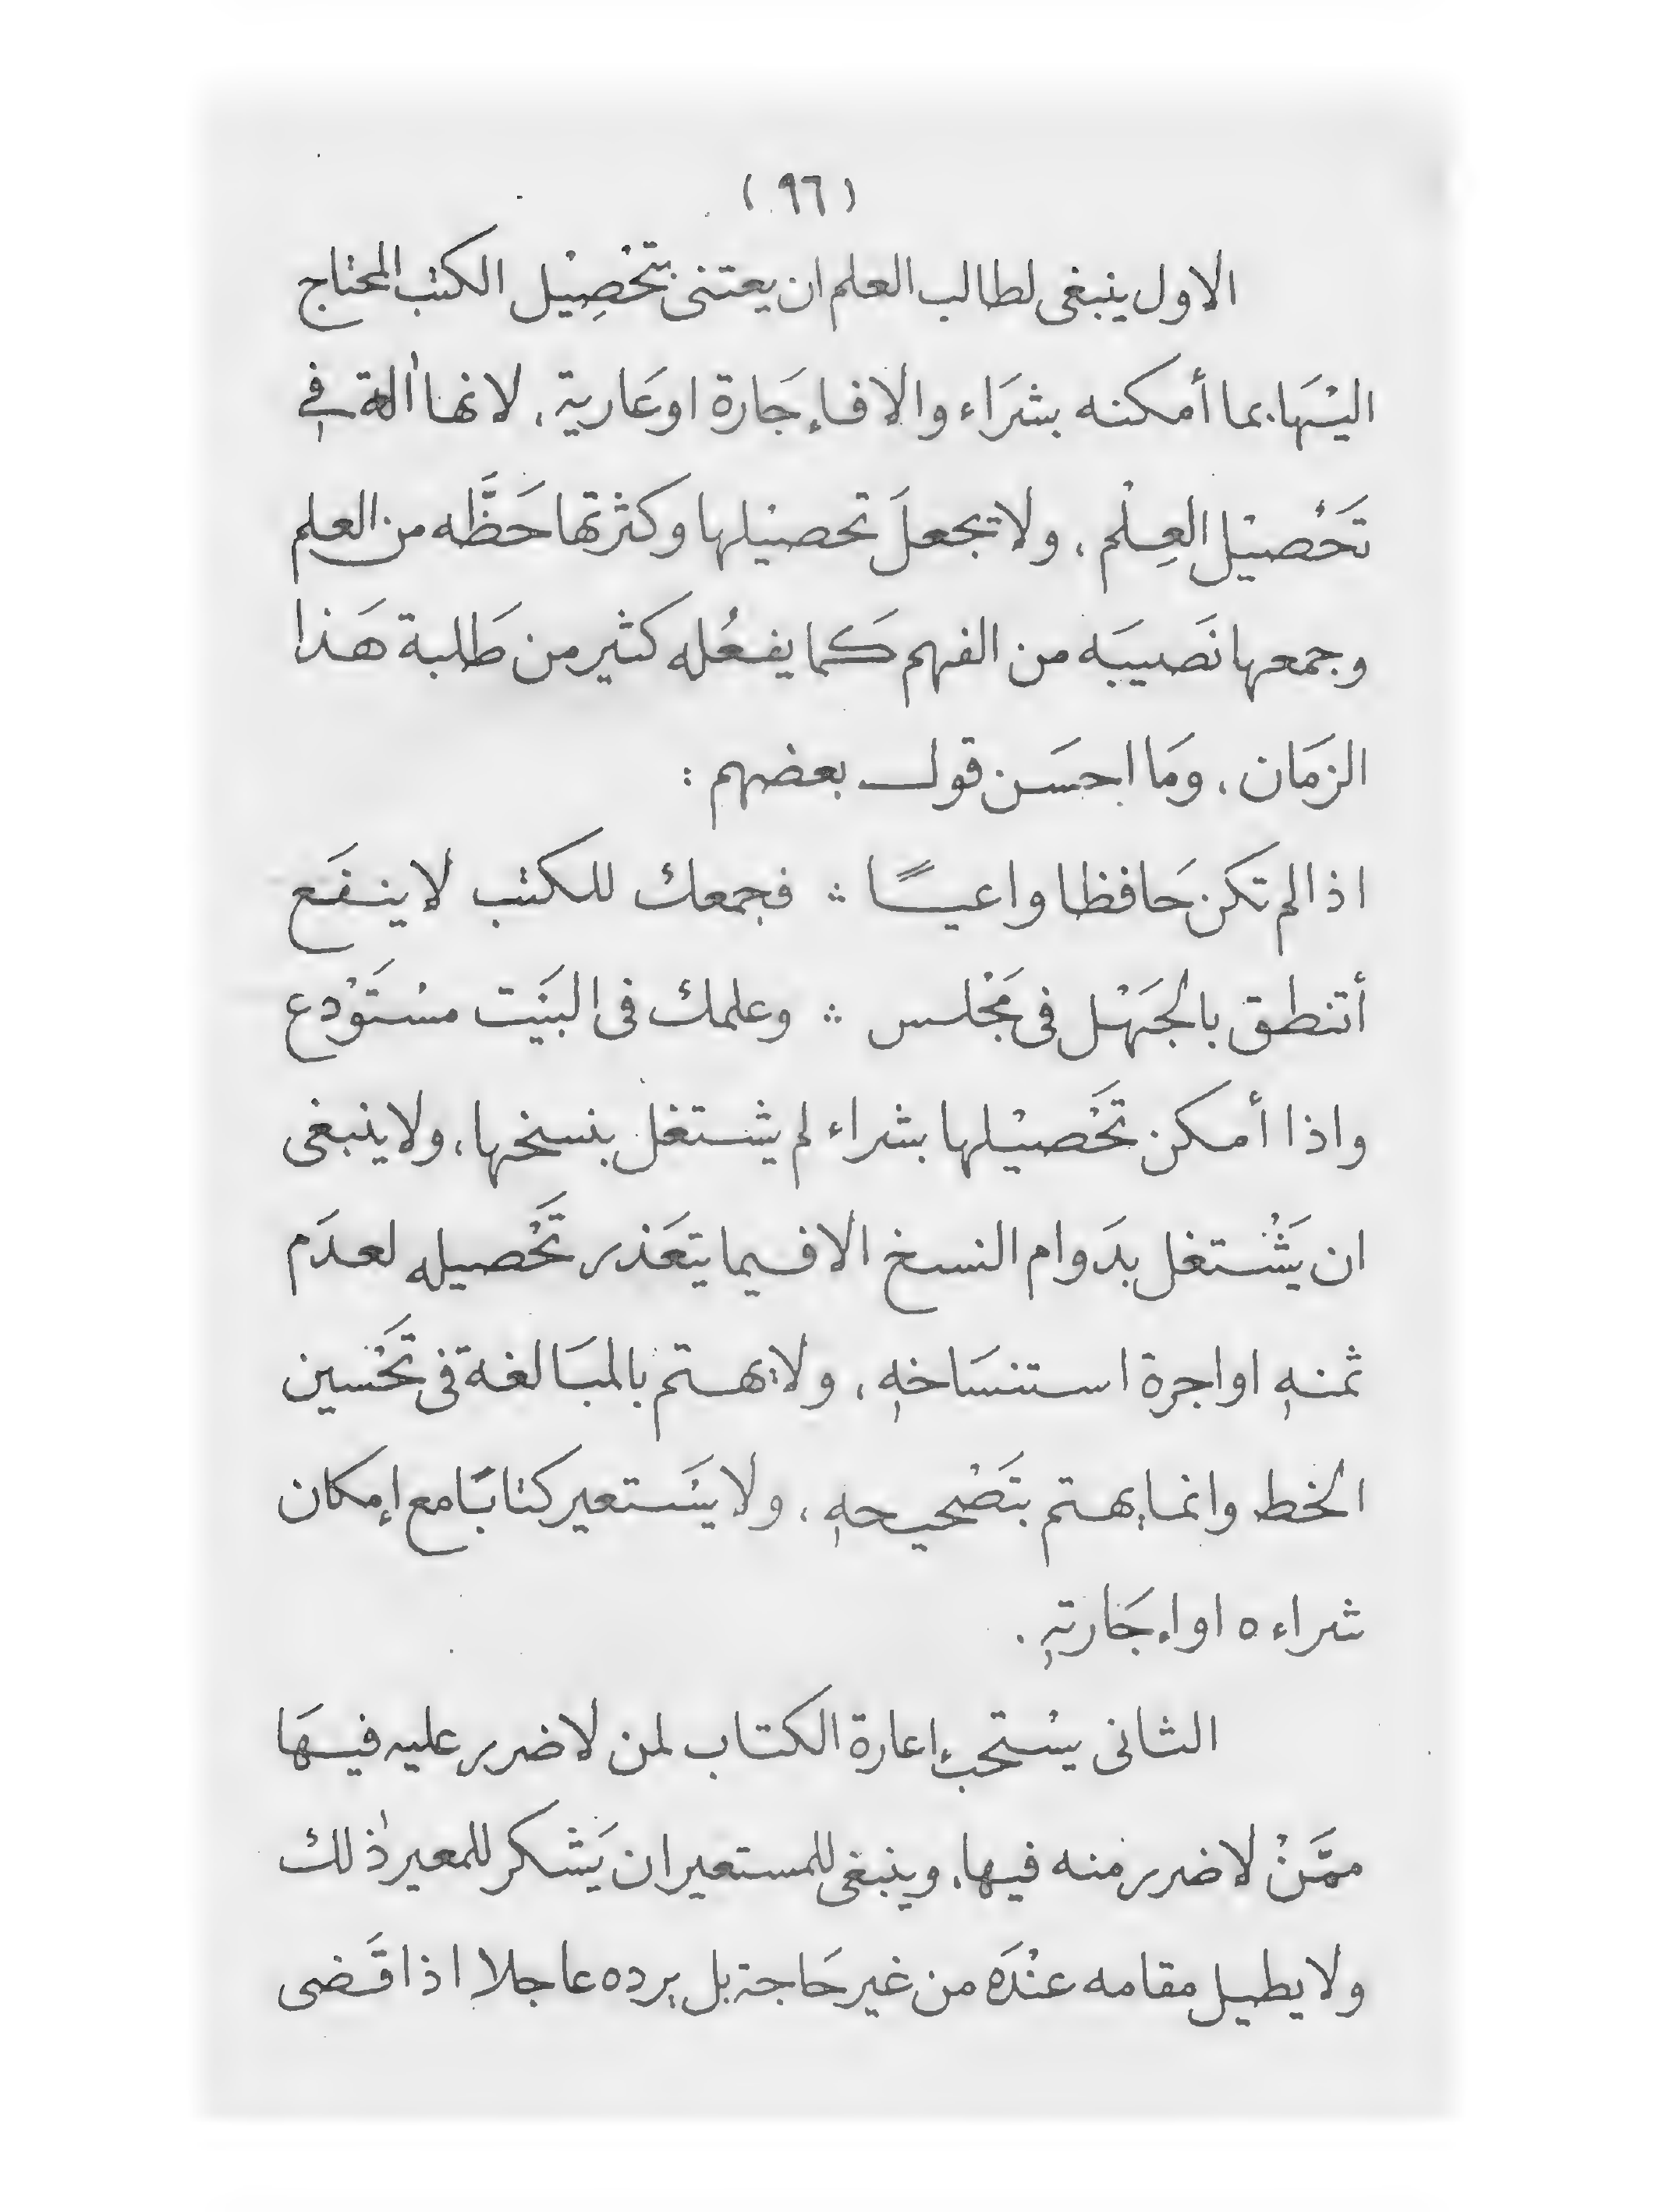 (٩٦)
الاول ينبغى لطالب العلم ان يعتنى بتَحْصِيْل الكتب المحتاج
اليْهَا بما أمكنه بشرَاء والا فإجَارة او عَارية، لانها اٰلة في
تَحْصيْل العِلْم، ولا تجعلَ تحصيْلها وكثرتها حَظَّه من العلم
وجمعها نَصيبَه من الفهم كَما يفعُله كثير من طَلبة هَذا
الزمَان، ومَا احسَن قول بعضهم :
اذا لم تكَن حَافظا واعيًا ∴ فجمعك للكتب لا ينفَع
أتنطق بالجَهْل فى مَجْلس ∴ وعلمك فى البَيْت مسْتَوْدع
واذا أمكن تَحْصيْلها بشراء لم يشتغل بنسخها، ولا ينبغى
ان يَشْتغل بدَوام النسخ الا فيما يتعَذر تَحْصيله لعدَم
ثمنهِ او اجرة استنسَاخهِ، ولا يهتم بالمبَالغة فى تَحْسين
الخط وانما يهتم بتَصْحيحهِ، ولا يسَْتعير كتابًا مع إمكان
شراءه او إجَارتهِ.
الثانى يسْتحبّ إعارة الكتاب لمن لا ضرر عليه فيهَا
ممَّنْ لا ضرر منه فيها، وينبغى للمستعير ان يَشْكر للمعير ذٰلك
ولا يطيل مقامه عنْدَه من غير حَاجة بل يرده عاجلا اذا قَضى